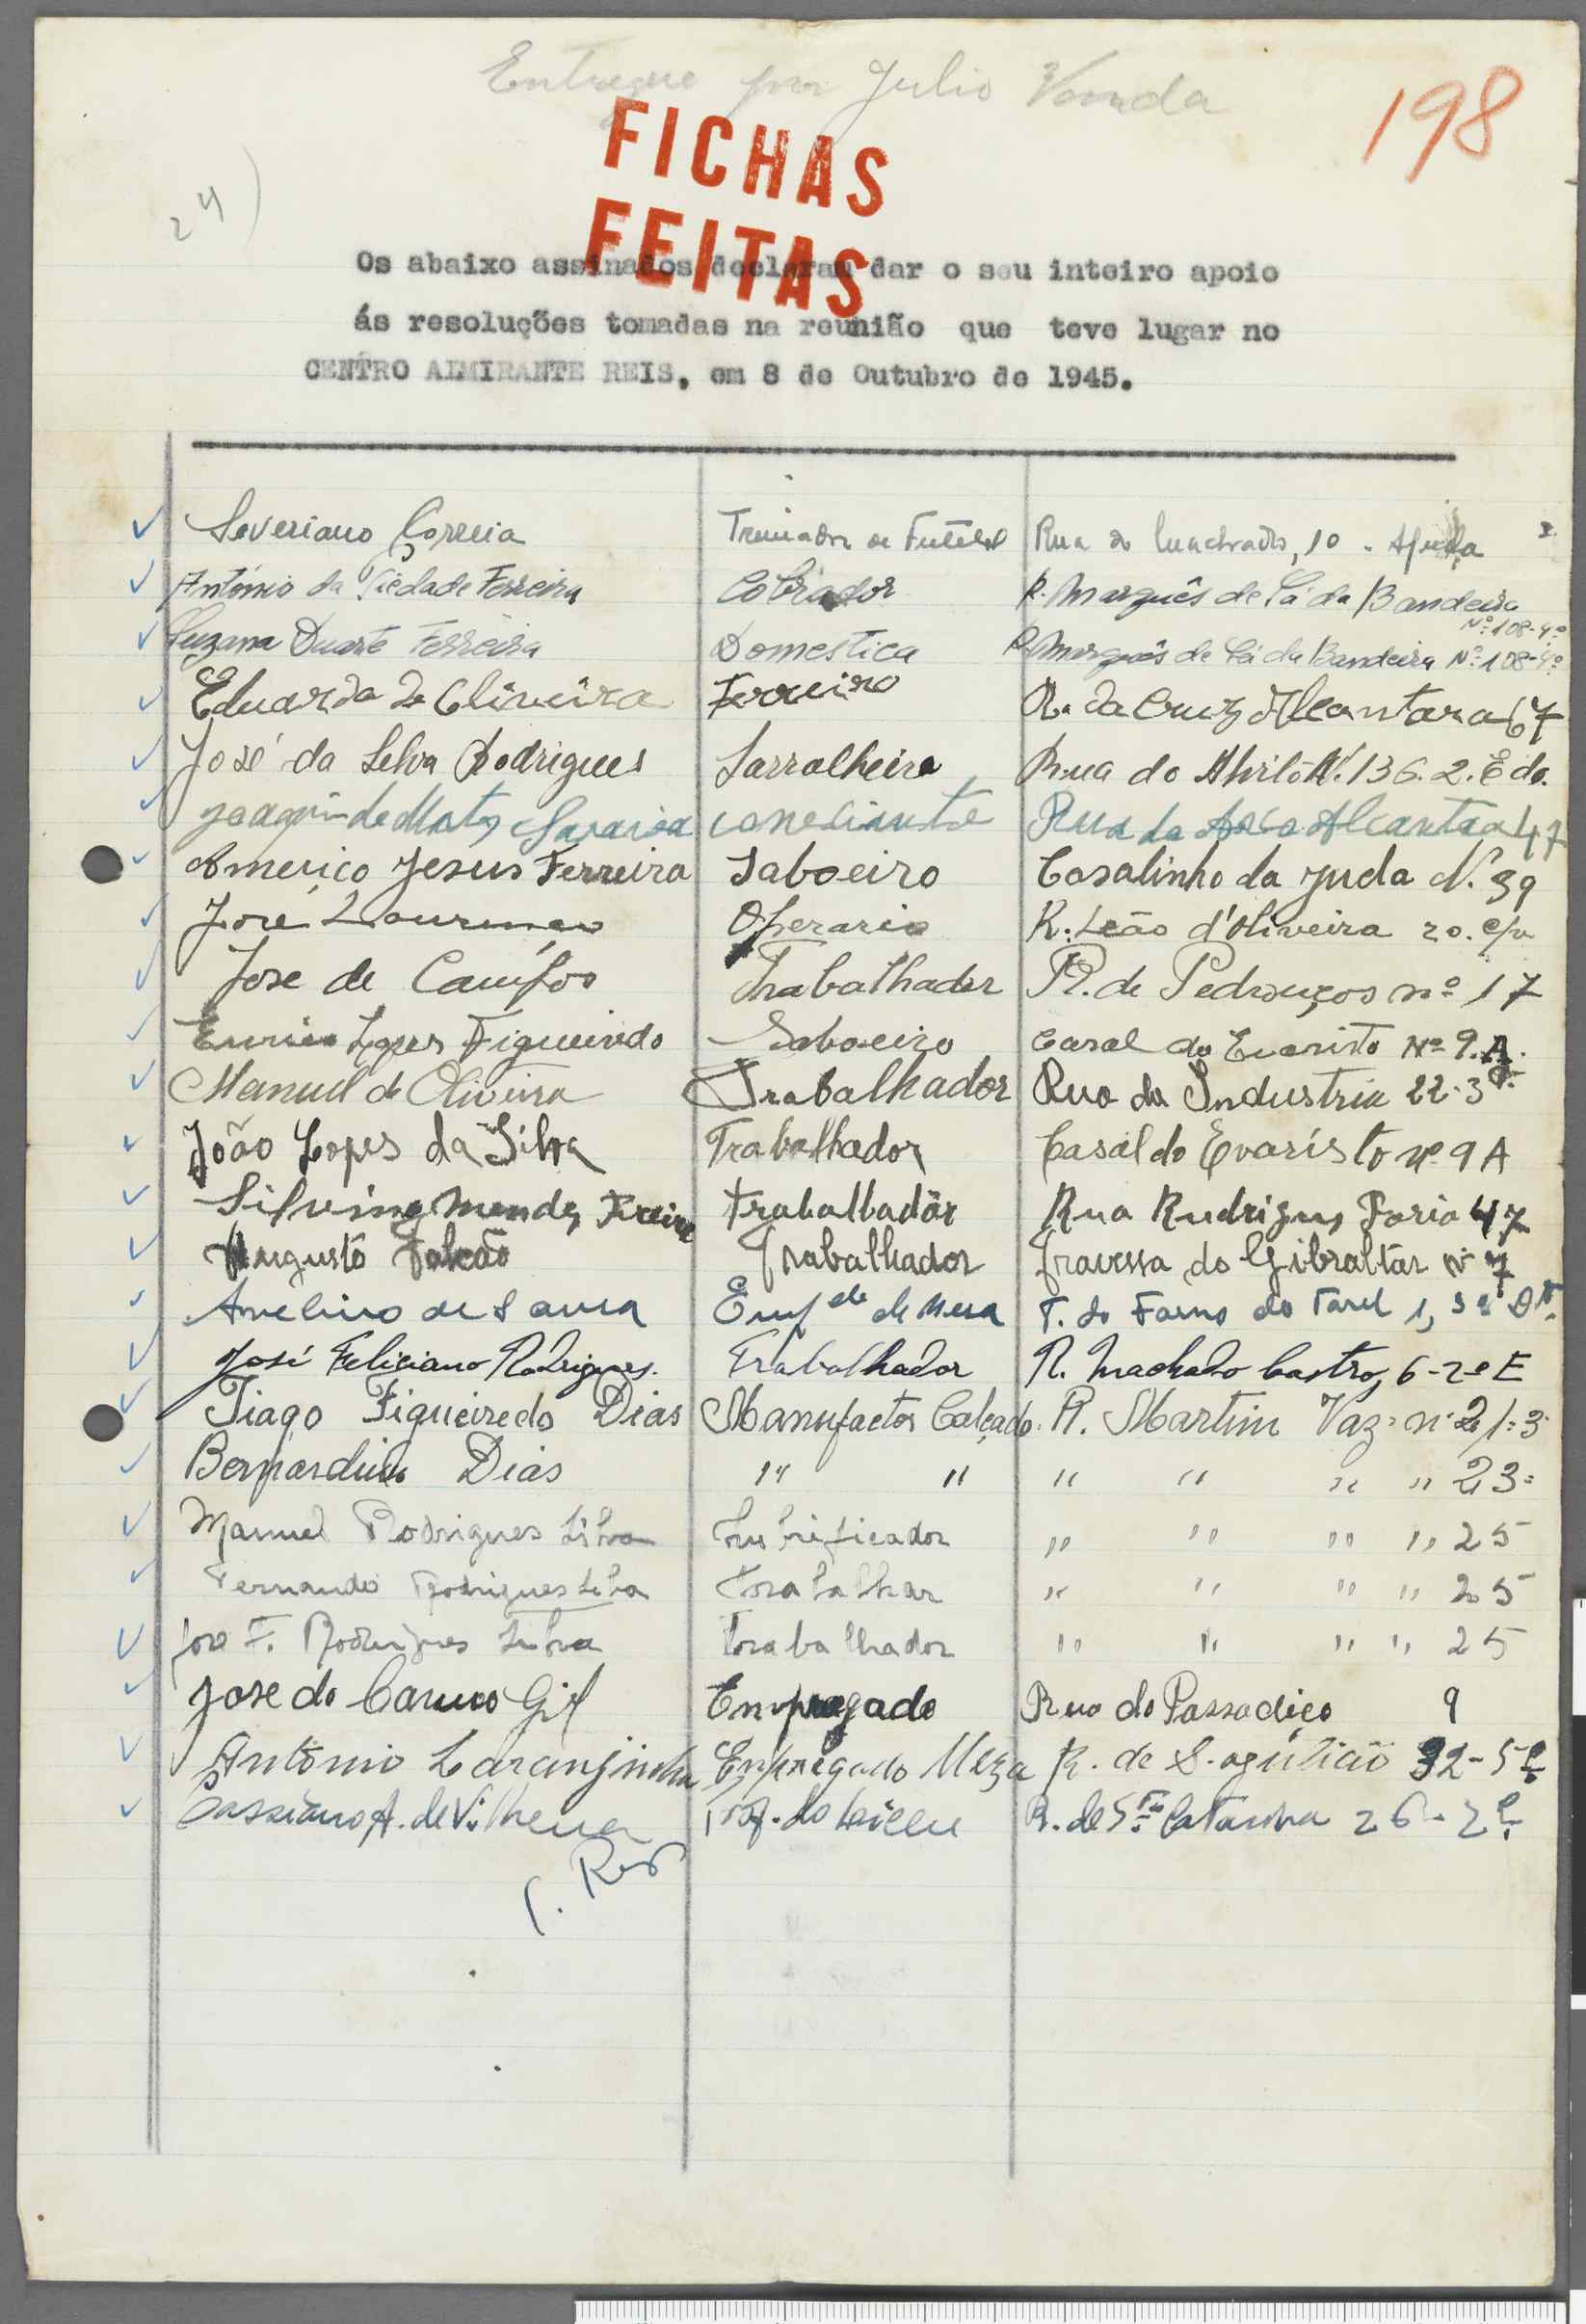 Entregue por Julio
198
24)
FICHAS
FEITAS
Os abaixo assinados declaram dar o seu inteiro apoio
ás resoluções tomadas na reunião que teve lugar no
CENTRO ALMIRANTE REIS, em 8 de Outubro de 1945.
Severiano Correia Treinador de Futebol Rua do Quadrado, 10 - Ajuda
António da Piedade Ferreira Cobrador R. Marquês de Sá da Bandeira
Nº 108-4º
Luzana Duarte Ferreira Domestica R. Marquês de Sá da Bandeira Nº 108-4º
Eduardo de Oliveira Ferreiro R. da Cruz Alcantara 67
José da Selva Rodrigues Sarralheiro Rua do Alvito N. 136. 2. Edo.
Joaquin de Matos Saraiva Rua do Arco Alcantara 47
Americo Jesus Ferreira Saboeiro Casalinho da Juda N. 39
José Lourenço Operario R. Leão d'Oliveira 20. c/v
Jose de Campos Trabalhador R. de Pedrouços nº 17
Eurico Lopes Figueiredo Saboeiro Casal do Evaristo Nº 9. A.
Manuel de Oliveira Trabalhador Rua da Industria 22-3º
João Lopes da Silva Trabalhador Casal do Evarísto nº 9 A
Silvino Mendes Trabalhador Rua Rudrigus Faria 47
Augusto Falcão Trabalhador Travessa do Gibraltar Nº 7
Avelino de Sousa Empdo de Mesa T. do Forno do 1, 3º Dto.
José Feliciano Rodrigues. Trabalhador R. Machado Castro, 6-2º E
Tiago Figueiredo Dias Manufactor Calçado. R. Martim Vaz = n. 21=3.
Bernardino Dias " " " " " " 23=
Manuel Rodrigues Silva Lubrificador " " " " 25
Fernando Rodrigues Silva Trabalhar " " " " 25
Jose F. Rodrigues Silva Trabalhador " " " " 25
Jose do Carmo Gil Empregado Rua do Passadiço 9
António Laranjinha Empregado Meza R. de S. 32-5º
Cassiano A. de Vilhena Prof. do Liceu R. de Sta Catarina 26-2º